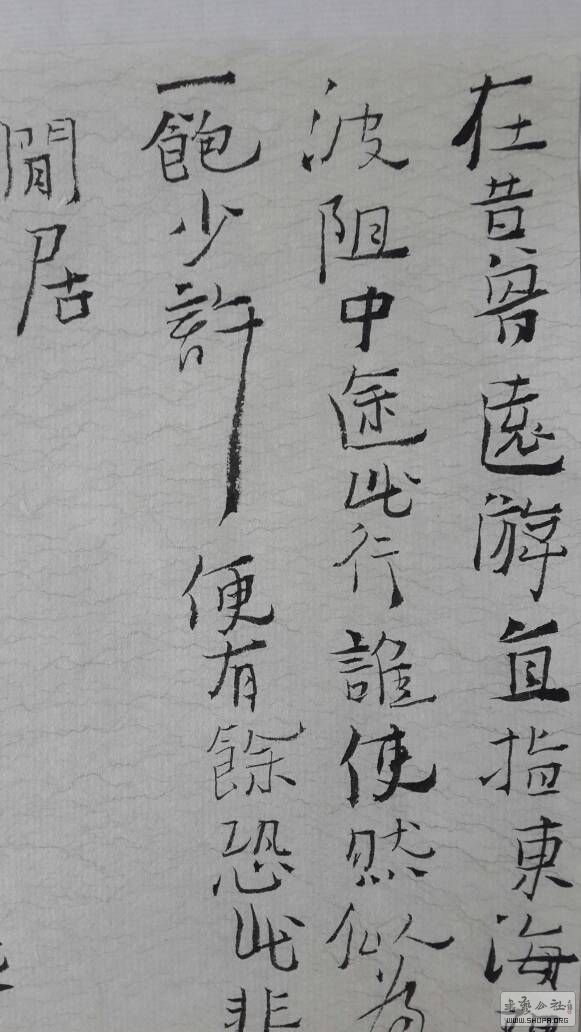 在昔曾遠游直指東海
波阻中途此行誰使然似為
一飽少許便有餘恐此非
閒居
WWW.SHUFA.ORG